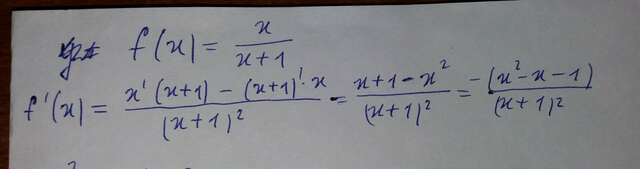 f(x) = x/(x+1)
f'(x) = (x'(x+1) - (x+1)'·x)/(x+1)² = (x+1-x²)/(x+1)² = -(x²-x-1)/(x+1)²